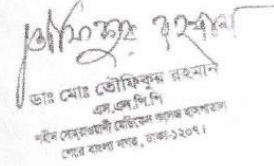 তৌফিকুর রহমান
ডাঃ মোঃ তৌফিকুর রহমান
এম.এল.পি.পি
শহীদ সোহরাওয়ার্দী মেডিকেল কলেজ হাসপাতাল
শেরে বাংলা নগর, ঢাকা-১২০৭।